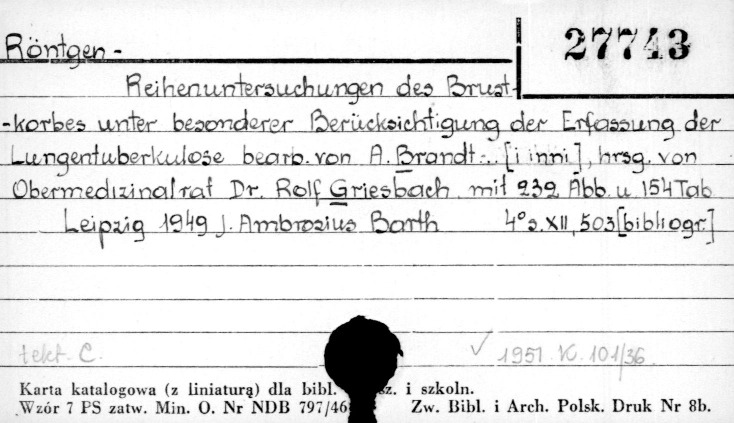 27743
Röntgen -
Reihenuntersuchungen des Brust-
-korbes unter besonderer Berücksichtigung der Erfassung der
Lungentuberkulose bearb. von A. Brandt... [i inni], hrsg. von
Obermedizinalrat Dr. Rolf Griesbach mit 232 Abb. u. 154 Tab
Leipzig 1949 J. Ambrosius Barth 4° s. XII, 503 [bibliogr.]
tekt. C. ✓ 1951 K. 101/36
Karta katalogowa (z liniaturą) dla bibl. sz. i szkoln.
Wzór 7 PS zatw. Min. O. Nr NDB 797/46 Zw. Bibl. i Arch. Polsk. Druk Nr 8b.